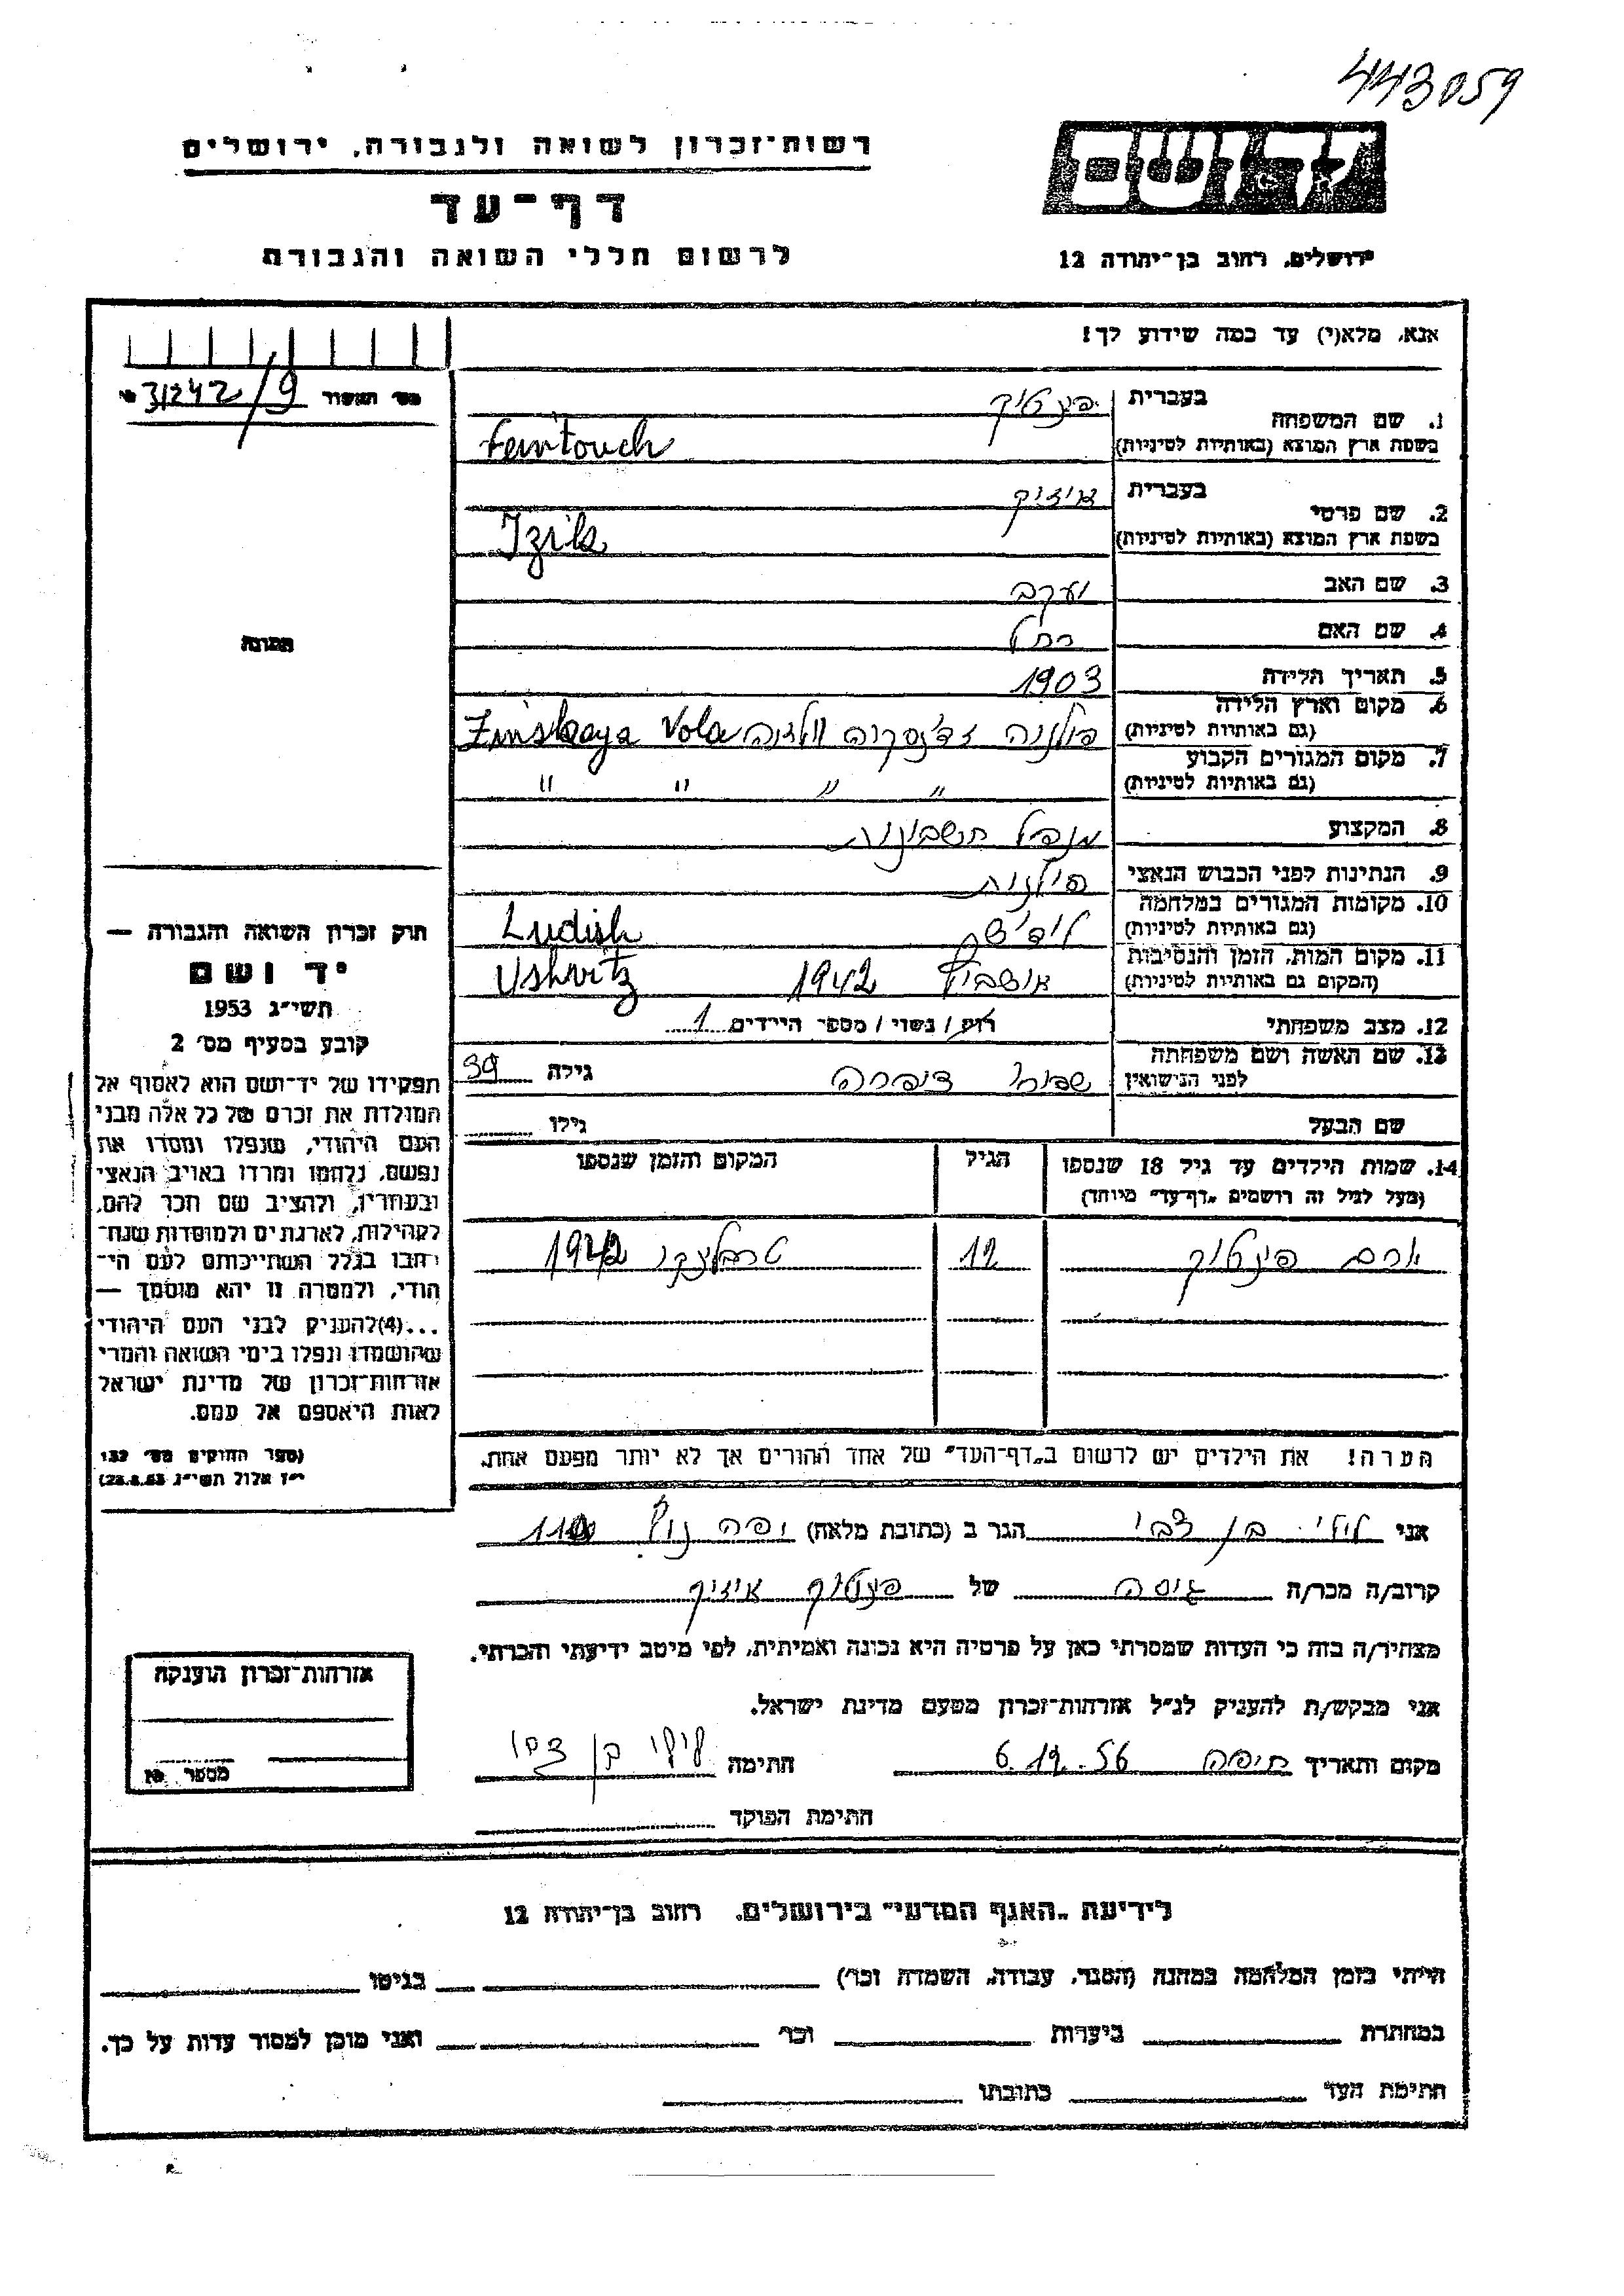 443059
רשות-זכרון לשואה ולגבורה, ירושלים
יד ושם
דף-עד
לרשום חללי השואה והגבורה
ירושלים, רחוב בן-יהודה 12
אנא, מלא(י) עד כמה שידוע לך!
מס' האשור 31242/9
1. שם המשפחה
בעברית
בשפת ארץ המוצא (באותיות לטיניות) Feintouch
2. שם פרטי
בעברית איזיק
בשפת ארץ המוצא (באותיות לטיניות) Izik
3. שם האב יעקב
4. שם האם רחל
5. תאריך הלידה 1903
6. מקום וארץ הלידה
(גם באותיות לטיניות) Vola
7. מקום המגורים הקבוע
(גם באותיות לטיניות) " " " "
8. המקצוע מנהל חשבונות
9. הנתינות לפני הכבוש הנאצי פולנית
10. מקומות המגורים במלחמה
(גם באותיות לטיניות) Ludish
11. מקום המות, הזמן והנסיבות
(המקום גם באותיות לטיניות) אושביץ 1942 Ushvitz
12. מצב משפחתי רוק / נשוי / מספר הילדים 1
13. שם האשה ושם משפחתה
לפני הנישואין דיפרה גילה 39
שם הבעל גילו
14. שמות הילדים עד גיל 18 שנספו
(מעל לגיל זה רושמים "דף-עד" מיוחד)
הגיל
המקום והזמן שנספו
12 טרבלינקי 1942
הערה! את הילדים יש לרשום ב"דף-העד" של אחד ההורים אך לא יותר מפעם אחת.
תמונה
חוק זכרון השואה והגבורה —
יד ושם
תשי"ג 1953
קובע בסעיף מס' 2
תפקידו של יד-ושם הוא לאסוף אל
המולדת את זכרם של כל אלה מבני
העם היהודי, שנפלו ומסרו את
נפשם, נלחמו ומרדו באויב הנאצי
ובעוזריו, ולהציב שם וזכר להם,
לקהילות, לארגונים ולמוסדות שנח-
רבו בגלל השתייכותם לעם הי-
הודי, ולמטרה זו יהא מוסמך —
...(4)להעניק לבני העם היהודי
שהושמדו ונפלו בימי השואה והמרי
אזרחות-זכרון של מדינת ישראל
לאות היאספם אל עמם.
(ספר החוקים מס' 132
י"ז אלול תשי"ג 28.8.53)
אני לילי בן צבי הגר ב (כתובת מלאה) יפה נוף
קרוב/ה מכר/ה גיסה של איזיק
מצהיר/ה בזה כי העדות שמסרתי כאן על פרטיה היא נכונה ואמיתית, לפי מיטב ידיעתי והכרתי.
אני מבקש/ת להעניק לנ"ל אזרחות-זכרון מטעם מדינת ישראל.
מקום ותאריך חיפה 6.12.56 חתימה לילי בן צבי
חתימת הפוקד
אזרחות-זכרון הוענקה
מספר
לידיעת "האגף המדעי" בירושלים, רחוב בן-יהודה 12
הייתי בזמן המלחמה במחנה (הסגר, עבודה, השמדה וכו') בגיטו
במחתרת ביערות וכו' ואני מוכן למסור עדות על כך.
חתימת העד כתובתו